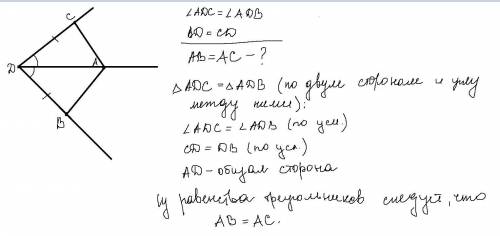 C
D
A
B
∠ADC = ∠ADB
BD = CD
AB = AC - ?
△ADC = △ADB (по двум сторонам и углу
между ними):
∠ADC = ∠ADB (по усл)
CD = DB (по усл.)
AD - общая сторона
Из равенства треугольников следует, что
AB = AC.